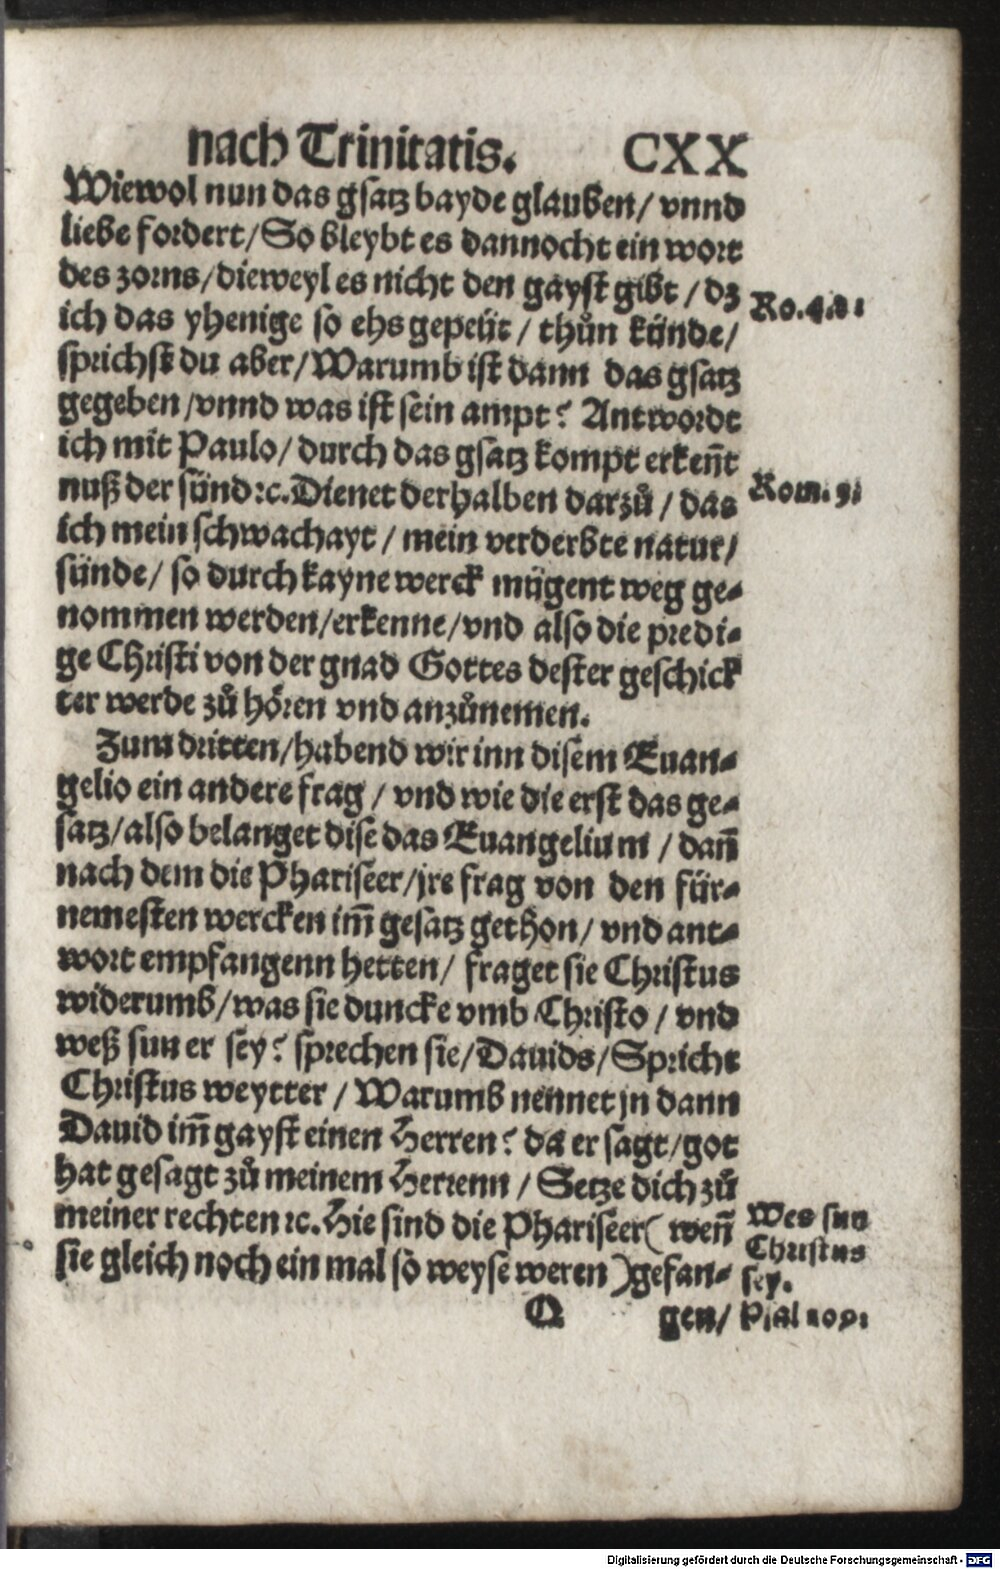 nach Trinitatis. CXX
Wiewol nun das gsatz bayde glauben/ vnnd
liebe fordert/ So bleybt es dannocht ein wort
des zorns/ dieweyl es nicht den gayst gibt / dz
Ro.4.
ich das yhenige so ehs gepeüt / thůn künde/
sprichst du aber/ Warumb ist dann das gsatz
gegeben /vnnd was ist sein ampt? Antwordt
ich mit Paulo/ durch das gsatz kompt erkeñt
nuß der sünd ꝛc. Dienet derhalben darzů / das
Rom.
ich mein schwachayt / mein verderbte natur/
sünde/ so durch kayne werck mügent weg ge-
nommen werden/erkenne/vnd also die predi-
ge Christi von der gnad Gottes dester geschick
ter werde zů hören vnd anzůnemen.
Zum dritten/habend wir inn disem Euan-
gelio ein andere frag / vnd wie die erst das ge-
satz/also belanget dise das Euangelium / dañ
nach dem die Phariseer/jre frag von den für-
nemesten wercken im̃ gesatz gethon/ vnd ant-
wort empfangenn hetten/ fraget sie Christus
widerumb/was sie duncke vmb Christo / vnd
weß sun er sey? sprechen sie/Dauids/Spricht
Christus weytter / Warumb nennet jn dann
Dauid im̃ gayst einen Herren? da er sagt/got
hat gesagt zů meinem Herrenn / Setze dich zů
meiner rechten ꝛc. Hie sind die Phariseer( weñ
sie gleich noch ein mal so weyse weren )gefan-
Wes sun
Christus
sey.
Q gen/
Psal 109:
Digitalisierung gefördert durch die Deutsche Forschungsgemeinschaft - DFG